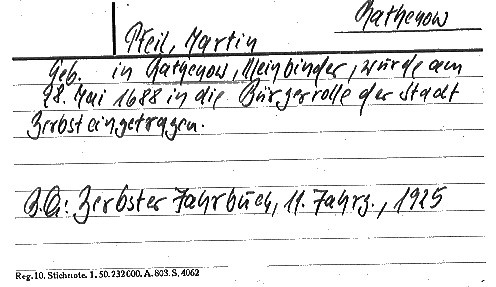 Rathenow
Pfeil, Martin
Geb. in Rathenow, Kleinbinder, wurde am
28. Mai 1688 in die Bürgerrolle der Stadt
Zerbst eingetragen.
B.Q.: Zerbster Jahrbuch, 11. Jahrg., 1925
Reg. 10. Stichnote. 1. 50. 232000. A. 803. S. 4062